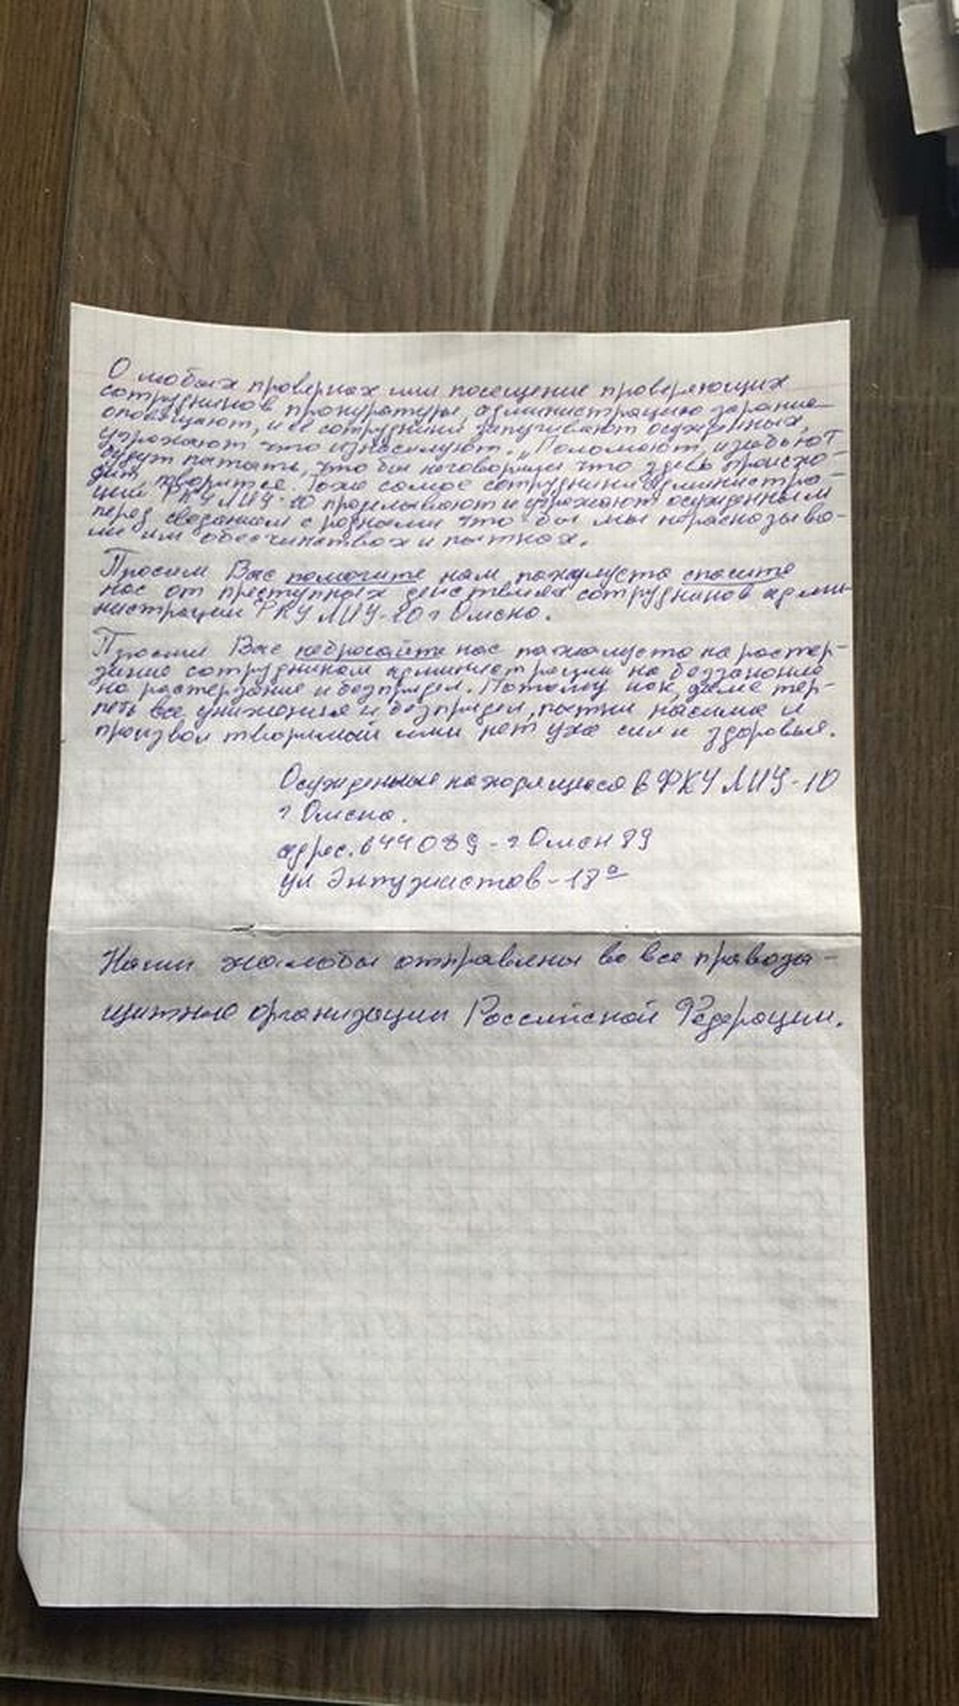 О любых проверках или посещение проверяющих
сотрудников прокуратуры, администрацию зарание
оповещают, и её сотрудники запугивают осужденных,
угрожают что изнасилуют. „Поломают, изобьют
будут пытать, что бы неговорили что здесь происхо-
дит, творится. Тоже самое сотрудники администра-
ции ФКУ ЛИУ-10 проделывают и угрожают осужденным
перед свиданием с родными что бы мы нерасказыва-
ли им о бесчинствах и пытках.
Просим Вас помогите нам пожалуста спасите
нас от преступных действиях сотрудников админи
нистрации ФКУ ЛИУ-10 г Омска.
Просим Вас небросайте нас пожалуста на растер-
зание сотрудникам администрации на беззаконие
на растерзание и безпридел. Потому как, даме тер-
петь все унижения и безпридел, пытки насилие и
произвол творимый ими нет уже сил и здоровья.
Осужденные находящиеся в ФКУ ЛИУ-10
г Омска.
адрес. 644089 - г Омск 89
ул Энтузиастов-18а
Наши жалобы отправлены во все правоза-
щитные организации Российской Федерации.